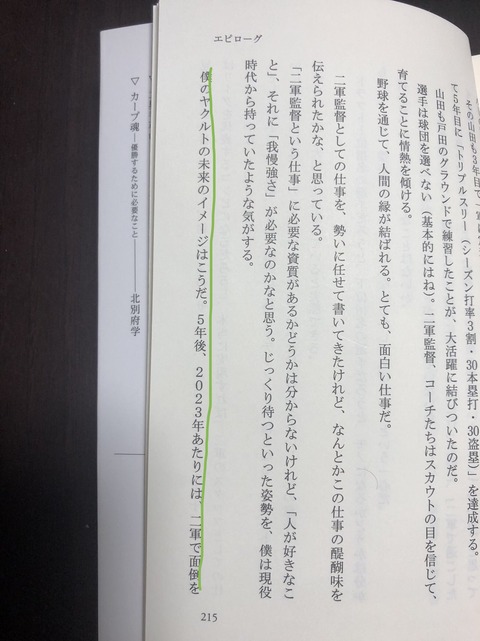 エピローグ
その山田も３年目で一軍
て５年目に「トリプルスリー（シーズン打率３割・30本塁打・30盗塁）」を達成する。
山田も戸田のグラウンドで練習したことが、大活躍に結びついたのだ。
選手は球団を選べない（基本的にはね）。二軍監督、コーチたちはスカウトの目を信じて、
育てることに情熱を傾ける。
野球を通じて、人間の縁が結ばれる。とても、面白い仕事だ。
二軍監督としての仕事を、勢いに任せて書いてきたけれど、なんとかこの仕事の醍醐味を
伝えられたかな、と思っている。
「二軍監督という仕事」に必要な資質があるかどうかは分からないけれど、「人が好きなこ
と」、それに「我慢強さ」が必要なのかなと思う。じっくり待つといった姿勢を、僕は現役
時代から持っていたような気がする。
僕のヤクルトの未来のイメージはこうだ。５年後、２０２３年あたりには、二軍で面倒を
215
▽ カープ魂―優勝するために必要なこと――北別府学